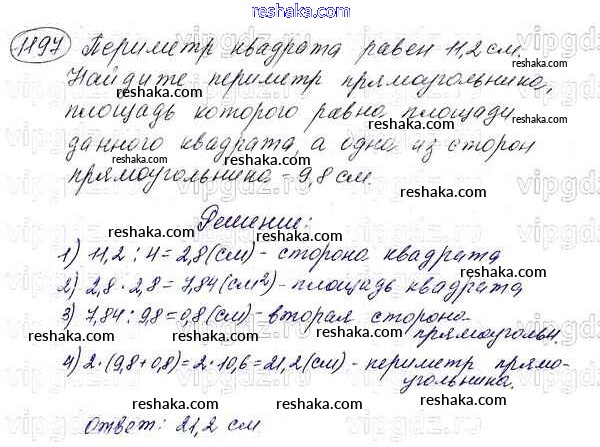 reshaka.com
1197 Периметр квадрата равен 11,2 см.
reshaka.com
Найдите периметр прямоугольника,
reshaka.com
площадь которого равна площади
reshaka.com
данного квадрата, а одна из сторон
reshaka.com reshaka.com
прямоугольника - 9,8 см.
reshaka.com
Решение:
reshaka.com reshaka.com
1) 11,2 : 4 = 2,8 (см) - сторона квадрата
reshaka.com reshaka.com
2) 2,8 · 2,8 = 7,84 (см²) - площадь квадрата
3) 7,84 : 9,8 = 0,8 (см) - вторая сторона
reshaka.com reshaka.com
прямоугольн.
4) 2·(9,8+0,8) = 2·10,6 = 21,2 (см) - периметр прямо-
reshaka.com reshaka.com
угольника.
reshaka.com reshaka.com
Ответ: 21,2 см
reshaka.com